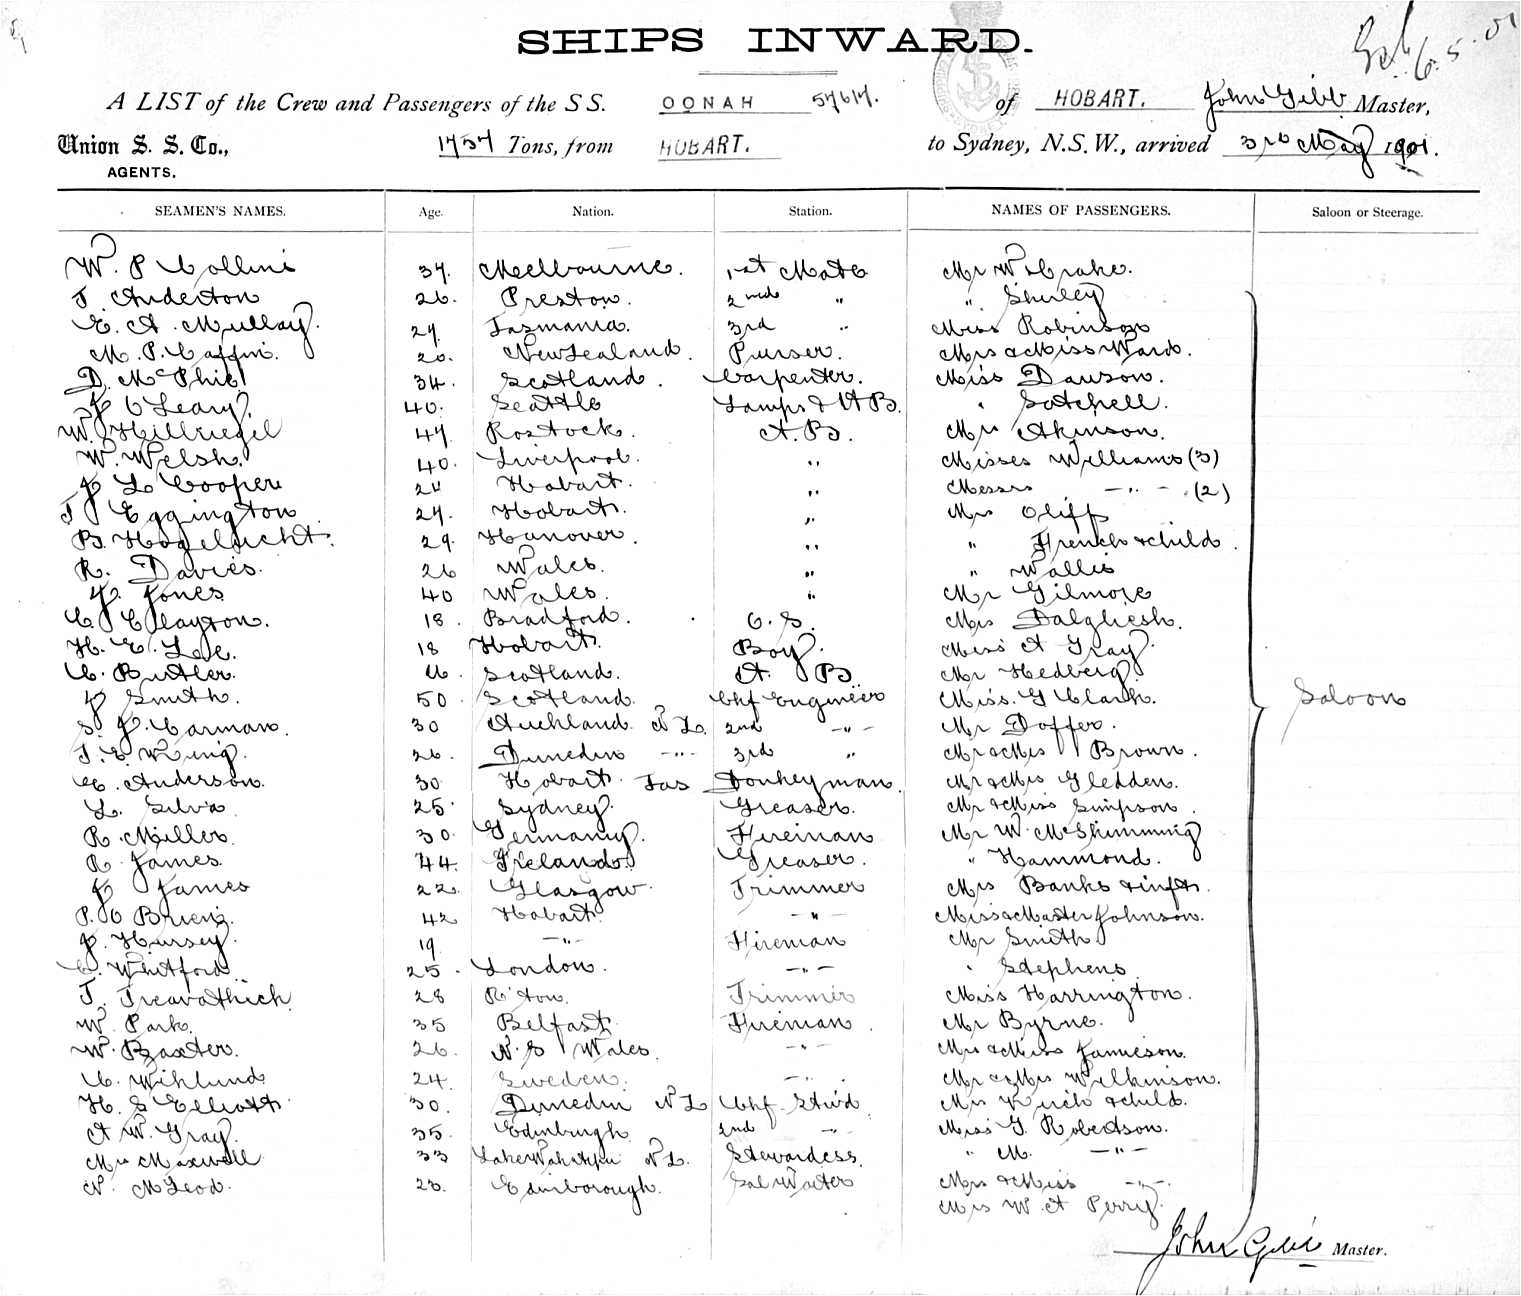 SHIPS INWARD.
6.5.01
A LIST of the Crew and Passengers of the S S. OONAH 57617. of HOBART. John Gibb Master,
Union S. S. Co., 1757 Tons, from HOBART. to Sydney, N.S.W., arrived 3rd May 1901.
AGENTS.
SEAMEN'S NAMES. Age. Nation. Station. NAMES OF PASSENGERS. Saloon or Steerage.
W. P Collins 37. Melbourne. 1st Mate Mr W. Crake.
T. Anderton 26. Preston. 2nd " " Shirley
E. A. Mullay. 27. Tasmania. 3rd " Miss Robinson
M. P. Caffin. 20. New Zealand. Purser. Mrs & Miss Ward.
D. McPhie 34. Scotland. Carpenter. Miss Dawson.
J O'Leary. 40. Seattle Lamps & A B. " Satchell.
W. Hillriegel 47. Rostock. A. B. Mrs Akinson.
W. Welsh. 40. Liverpool. " Misses Williams (3)
J L Cooper 24 Hobart. " Messrs — " — (2)
T Eggington 27. Hobart. " Mrs Oliff
B. Hogelucht. 29. Hanover. " " French & child.
R. Davies. 26 Wales. " " Wallis
J. Jones 40 Wales. " Mr Gilmore
C Clayton. 18. Bradford. O. S. Mrs Dalgliesh.
H. E. Lee. 18 Hobart. Boy. Miss A Gray.
C. Butler. Scotland. A. B. Mr Hedberg.
J Smith. 50. Scotland. Chf Engineer Miss. G Clark.
S. J. Carman. 30 Auckland N Z. 2nd — " — Mr Doffer.
T. E. 26. Dunedin — " — 3rd " Mr & Mrs Brown.
C. Anderson. 30 Hobart Tas Donkeyman. Mr & Mrs Gledden.
L. Silva 25. Sydney. Greaser. Mr & Miss Simpson.
R. Miller. 30. Germany. Fireman Mr W. McSkimming
R James. 44. Ireland. Greaser. " Hammond.
J James 22. Glasgow. Trimmer Mrs Banks & inft.
P. O Brien. 42 Hobart. — " — Miss & Master Johnson.
J. Hursey. 19 — " — Fireman Mr Smith
C. Whitford. 25. London. — " — " Stephens.
T. Treavathick 28 Trimmer Miss Harrington.
W. Park. 35 Belfast. Fireman. Mr Byrne.
W. Baxter. 26 N. S Wales. — " — Mrs & Miss Jamieson.
C. Wihlund 24. Sweden. — " — Mr & Mrs Wilkinson.
H. S Elliott. 30. Dunedin N Z Chf Stwd. Mrs & child.
A W. Gray. 35. Edinburgh. 2nd " Miss G. Robertson.
Mrs Maxwell 33 Lake Wakatipu N Z. Stewardess. " M. — " —
N. McLeod. 23. Edinborough. Sal Waiter Mrs & Miss — " —
Mrs W. A Perry.
Saloon
John Gibb Master.